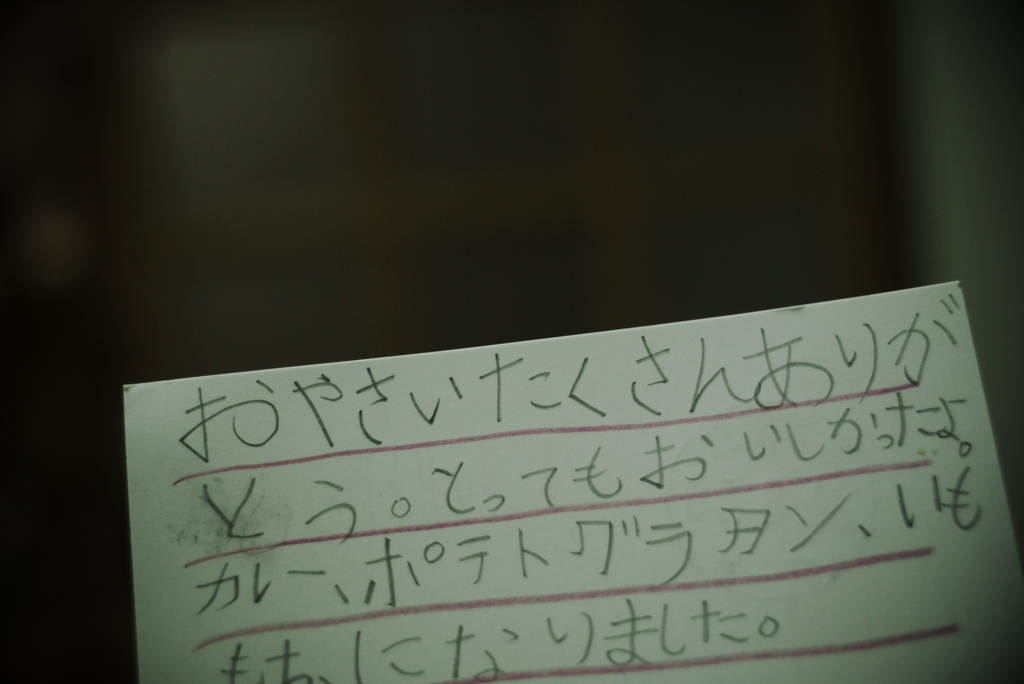 おやさいたくさんありが
とう。とってもおいしかったよ。
カレー、ポテトグラタン、いも
もちになりました。